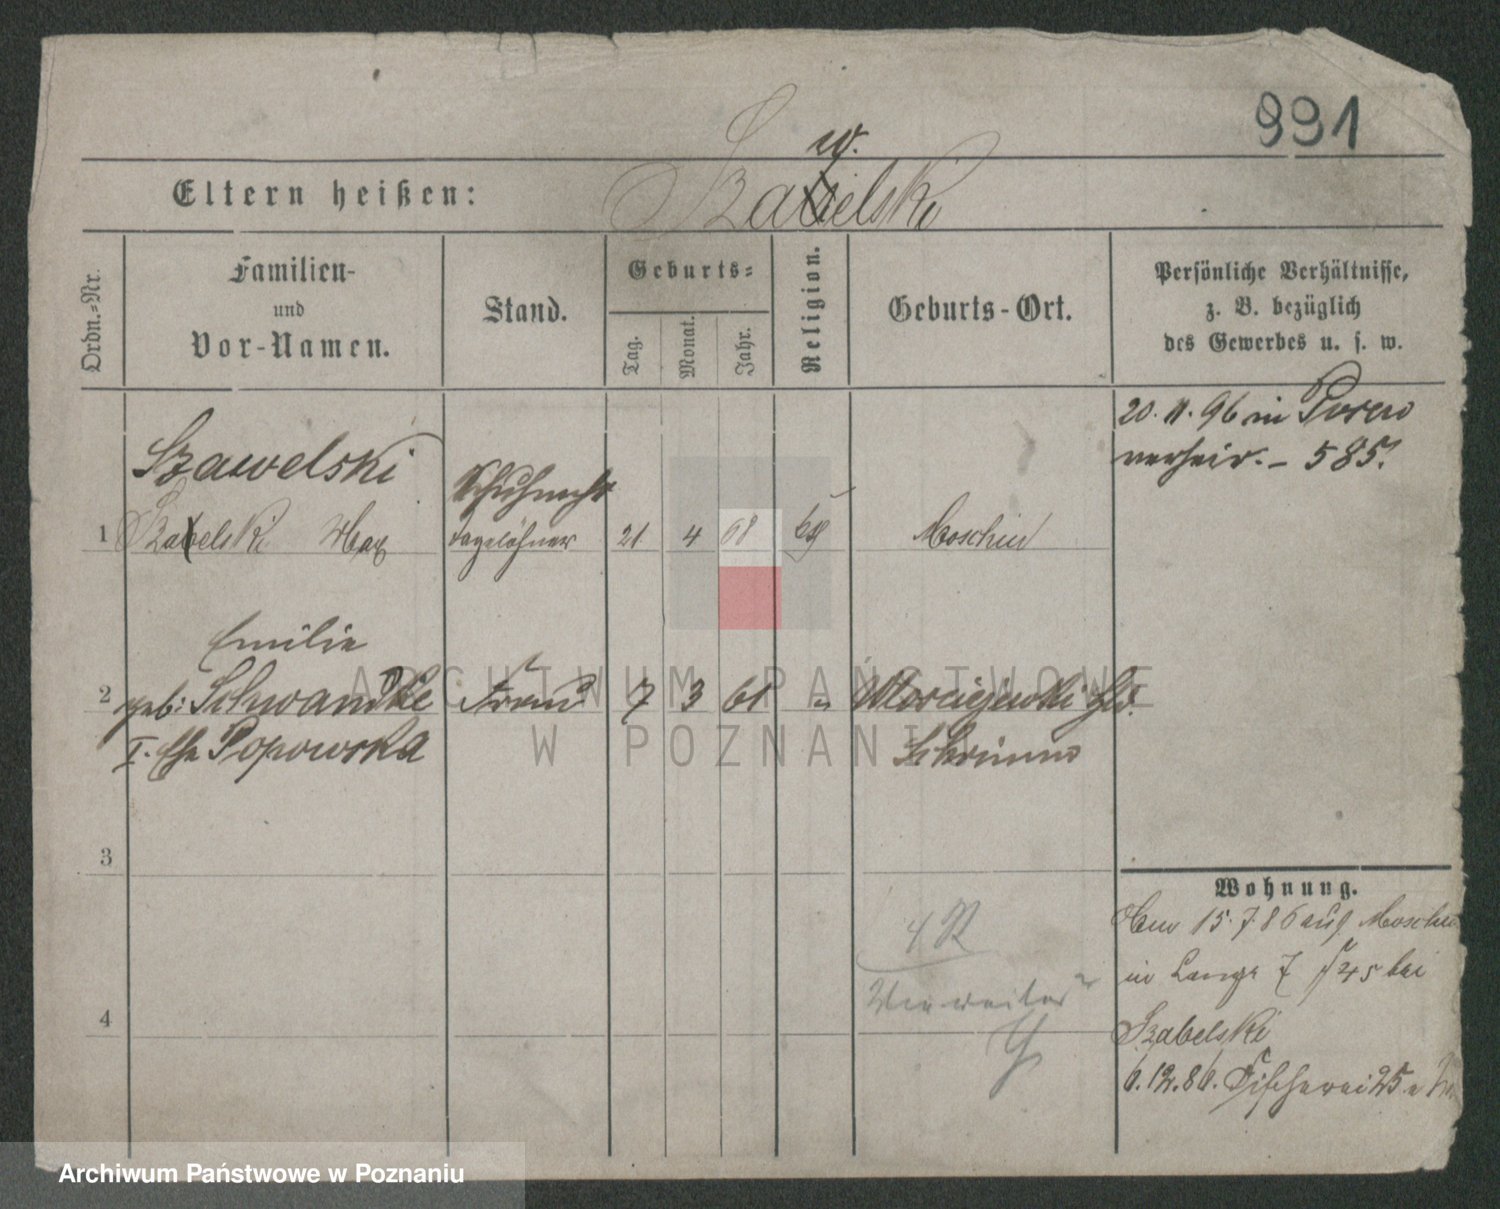 991
w.
Eltern heißen: Szabielski
Ordn.-Nr.
Familien-
und
Vor-Namen.
Stand.
Geburts-
Tag.
Monat.
Jahr.
Religion.
Geburts-Ort.
Persönliche Verhältnisse,
z. B. bezüglich
des Gewerbes u. s. w.
20. 11. 96 in Posen
verheir. – 585.
Szawelski
1 Szabelski Max Tagelöhner 21 4 68 Moschin
Emilie
2 geb: Schwandke Frau 7 3 61 "
I. Ehe Popowska Schrimm
3
4
Wohnung.
15. 7. 86 auf Moschin
in Lange 7 bei
Szabelski
6. 12. 86. Fischerei 25
ARCHIWUM PAŃSTWOWE
W POZNANIU
Archiwum Państwowe w Poznaniu